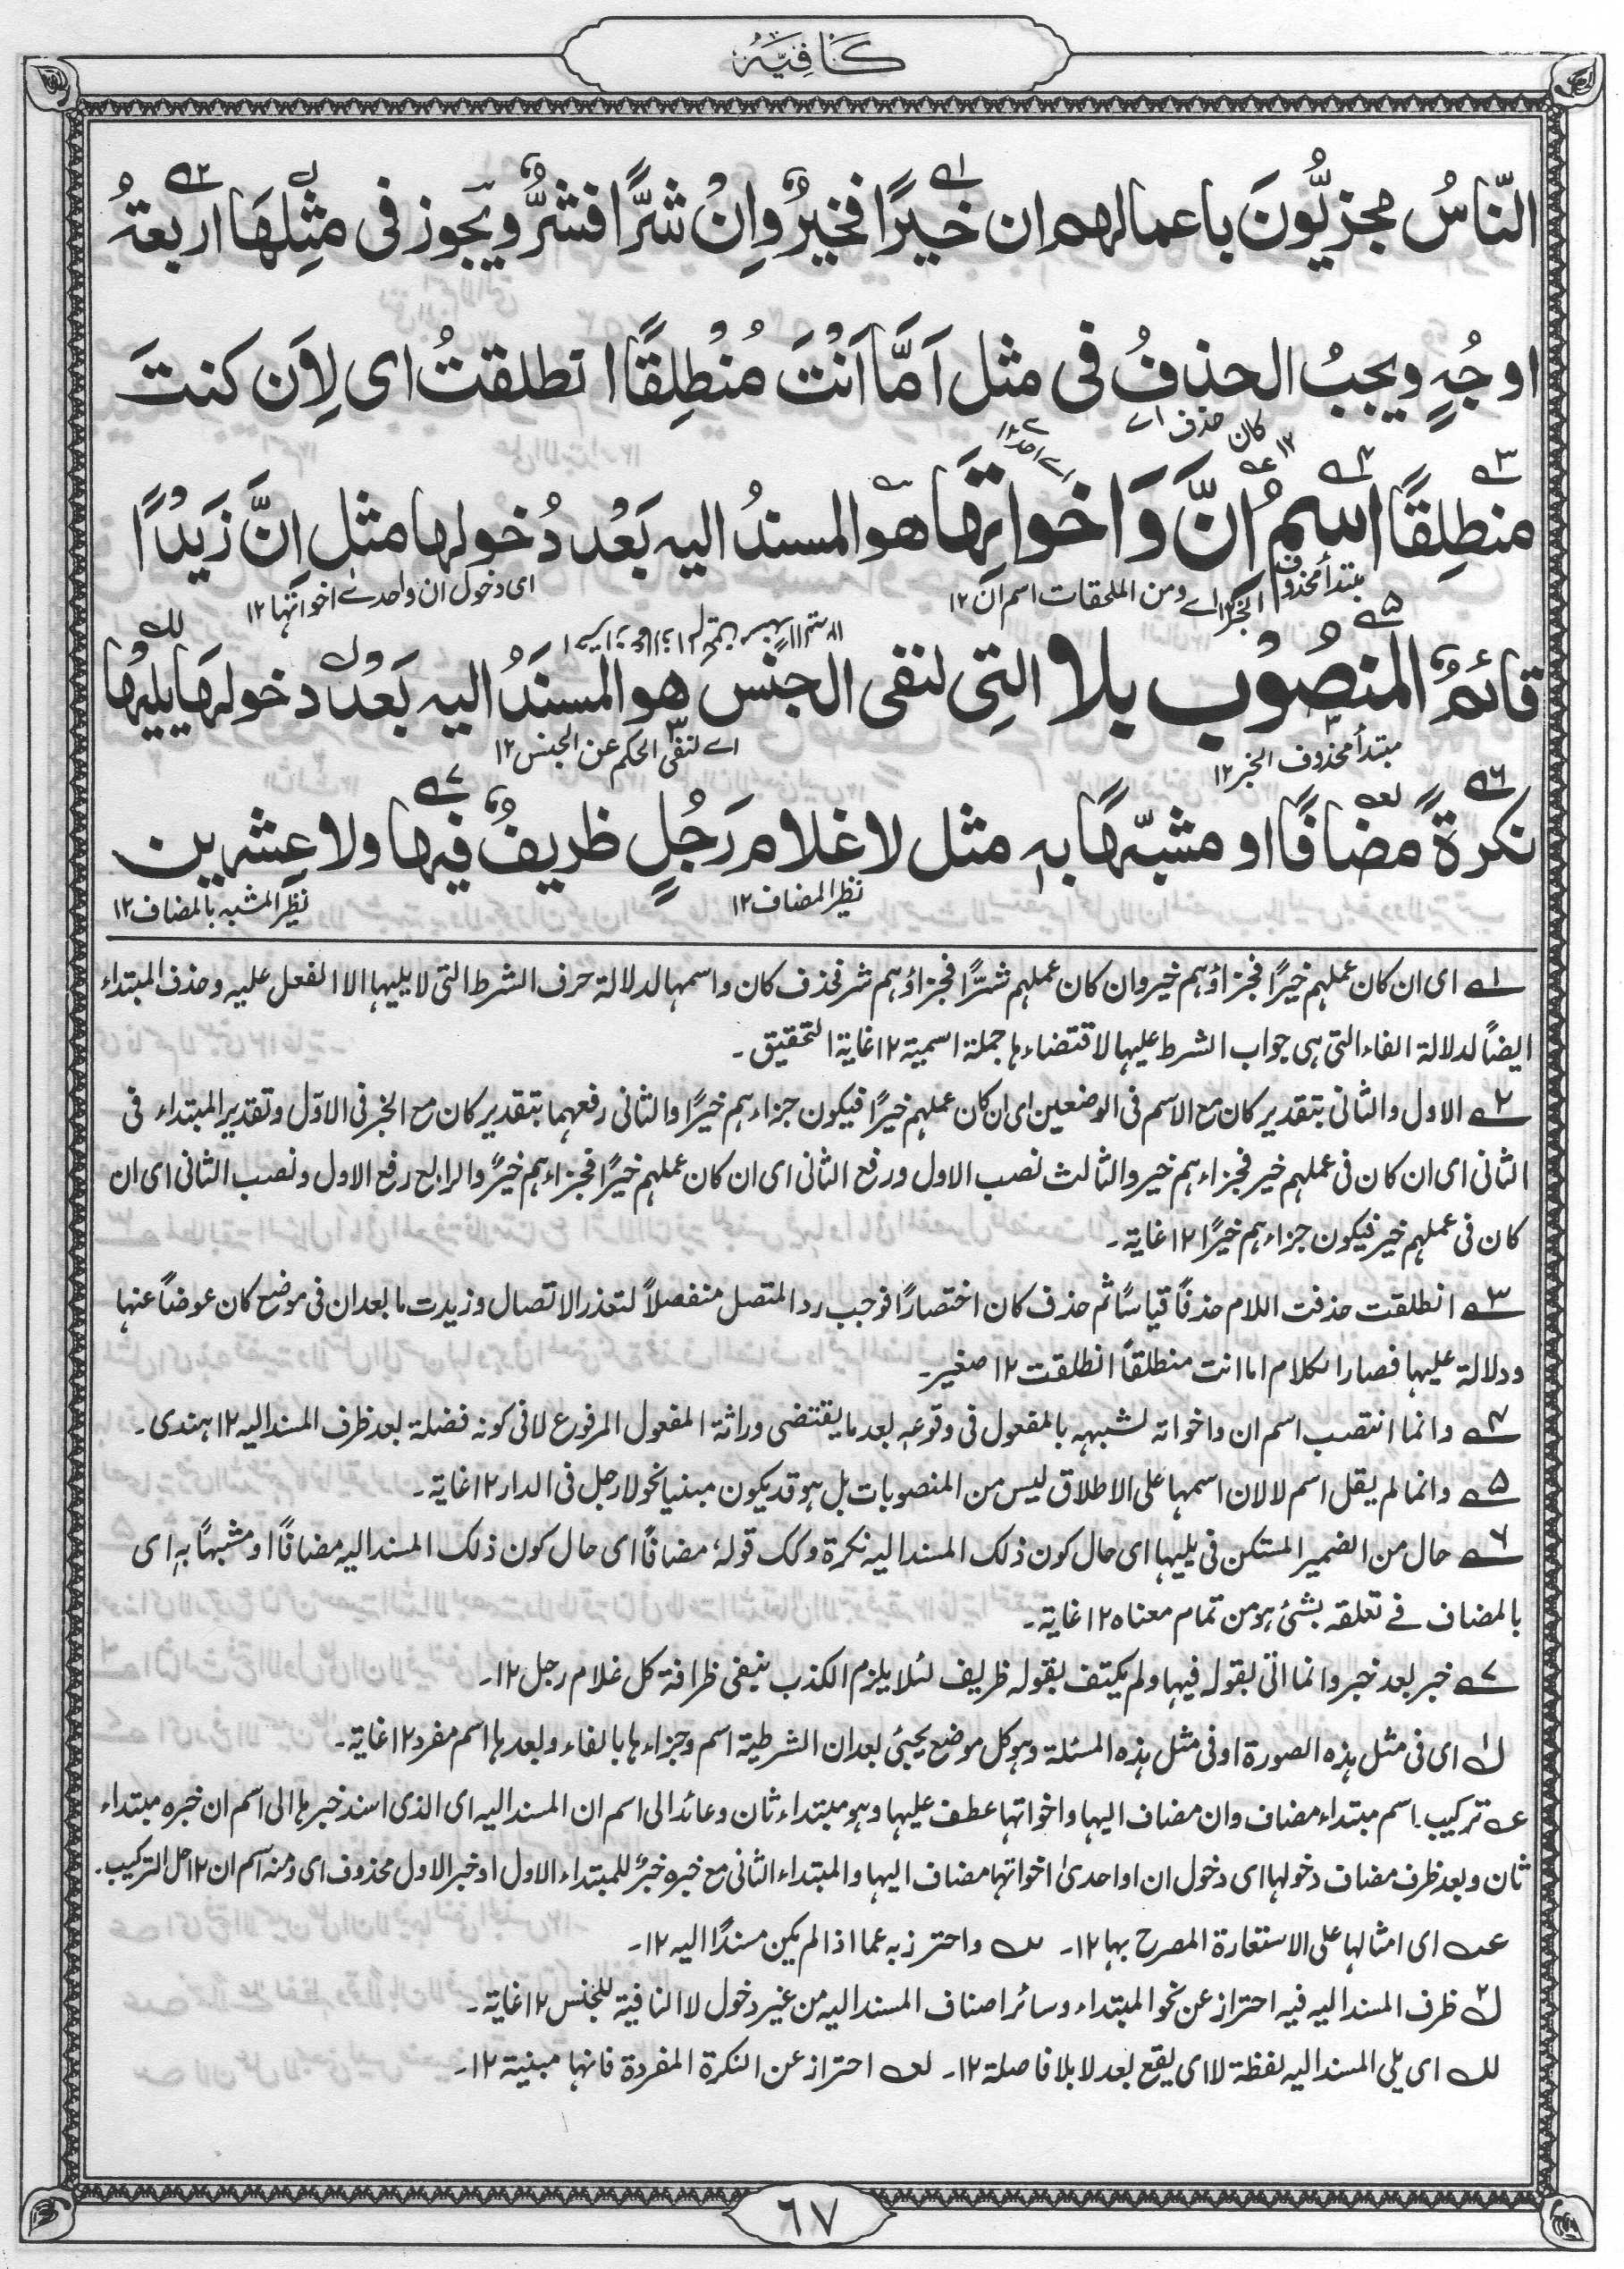 كَافِيَه
النّاسُ مجزيُّونَ باعمالهم ان خيرًا فخيرٌ واِنْ شرًّا فشرٌّ ويَجوز فى مثِلِهَا اربعةُ
اوجُهٍ ويجبُ الحذفُ فى مثل اَمَّا اَنْتَ مُنْطلِقًا انطلقتُ اى لِاَن كنتَ
كان حذف اے
منطلِقًا اسمُ اِنَّ وَاَخواتِهَا هو المسندُ اليه بَعْد دُخولها مثل اِنَّ زَيْدًا
مبتدأ محذوف الخبر اے ومن الملحقات اسم ان ١٢
اى دخول ان واحدے اخواتها ١٢
قائمٌ المنصُوْب بلا التِى لنفى الجنس هو المسنَدُ اليه بَعْد دخولهَا يليهَا
مبتدأ محذوف الخبر ١٢
اے لنفى الحكم عن الجنس ١٢
نكرةً مضافًا او مشبّهًا به مثل لا غلام رَجُلٍ ظريفٌ فيها ولا عشرين
نظير المضاف ١٢
نظير المشبه بالمضاف ١٢
١ اى ان كان عملهم خيرًا فجزاؤهم خير وان كان عملهم شرًّا فجزاؤهم شر فحذف كان واسمها لدلالة حرف الشرط التى لا يليها الا الفعل عليه وحذف المبتداء
ايضًا لدلالة الفاء التى هى جواب الشرط عليها لاقتضاءها جملة اسمية ١٢ غاية التحقيق۔
٢ الاول والثانى بتقدير كان مع الاسم فى الوضعين اى ان كان عملهم خيرًا فيكون جزاءهم خيرًا والثانى رفعهما بتقدير كان مع الخبر فى الاوّل وتقدير المبتداء فى
الثانى اى ان كان فى عملهم خير فجزاءهم خير والثالث نصب الاول ورفع الثانى اى ان كان عملهم خيرًا فجزاءهم خيرٌ والرابع رفع الاول ونصب الثانى اى ان
كان فى عملهم خير فيكون جزاءهم خيرًا ١٢ غاية۔
٣ انطلقت حذفت اللام حذفًا قياسًا ثم حذف كان اختصارًا فوجب رد المتصل منفصلاً لتعذر الاتصال وزيدت ما بعد ان فى موضع كان عوضاً عنها
ودلالة عليها فصار الكلام اما انت منطلقاً انطلقت ١٢ صغير۔
٤ وانما انتصب اسم ان واخواته لشبهه بالمفعول فى وقوعه بعد ما يقتضى وراثة المفعول المرفوع لا فى كونه فضلة بعد ظرف المسند اليه ١٢ هندى۔
٥ وانما لم يقل اسم لا لان اسمها على الاطلاق ليس من المنصوبات بل هو قد يكون مبنيا نحو لا رجل فى الدار ١٢ غاية۔
٦ حال من الضمير المستكن فى يليها اى حال كون ذلك المسند اليه نكرة وكك قوله مضافًا اى حال كون ذلك المسند اليه مضافًا او مشبهًا به اى
بالمضاف فے تعلقه بشئ هو من تمام معناه ١٢ غاية۔
٧ خبر بعد خبر وانما اتى بقوله فيها ولم يكتف بقوله ظريف لئلا يلزم الكذب بنفى ظرافة كل غلام رجل ١٢۔
ل اى فى مثل هذه الصورة او فى مثل هذه المسئلة وهو كل موضع يجيئ بعد ان الشرطية اسم وجزاءها بالفاء وبعدها اسم مفرد ١٢ غاية۔
عـ تركيب۔ اسم مبتداء مضاف وان مضاف اليها واخواتها عطف عليها وهو مبتداء ثان وعائد الى اسم ان المسند اليه اى الذى اسند خبرها الى اسم ان خبره مبتداء
ثان وبعد ظرف مضاف دخولها اى دخول ان او احدىٰ اخواتها مضاف اليها والمبتداء الثانى مع خبره خبرٌ للمبتداء الاول او خبر الاول محذوف اى ومنه اسم ان ١٢ حل التركيب۔
عـ اى امثالها على الاستعارة المصرح بها ١٢۔ واحترز به عما اذا لم يكن مسندًا اليه ١٢۔
ل ظرف المسند اليه فيه احتراز عن نحو المبتداء وسائر اصناف المسند اليه من غير دخول لا النافية للجنس ١٢ غاية۔
لل اى يلى المسند اليه لفظة لا اى يقع بعد لا بلا فاصلة ١٢۔ لعـ احتراز عن النكرة المفردة فانها مبنية ١٢۔
٦٧